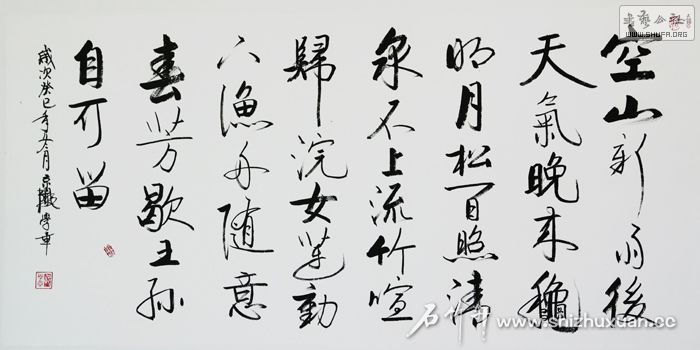 空山新雨後
天氣晚來龝
明月松間照清
泉石上流竹喧
歸浣女蓮動
下漁舟随意
春芳歇王孫
自可留
歲次癸巳年五月京學章
WWW.SHUFA.ORG
石竹轩 www.shizhuxuan.cc